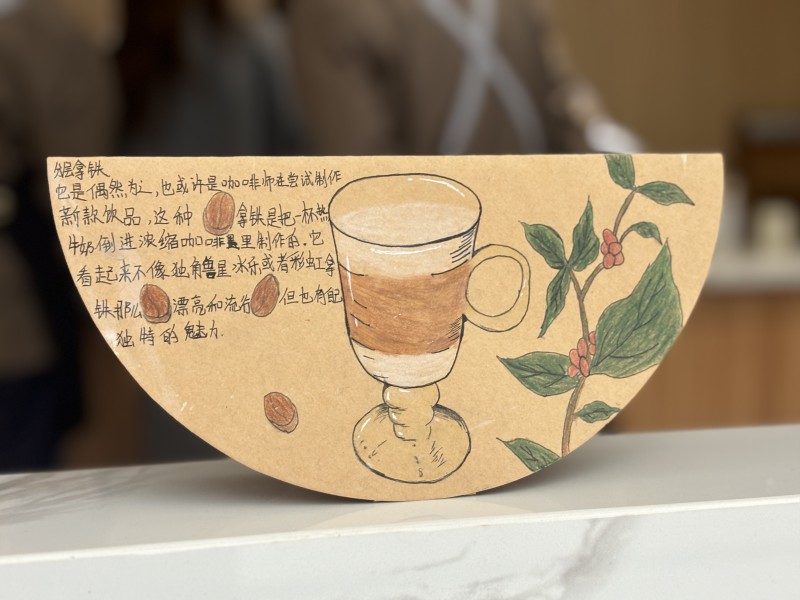 分层拿铁
它是偶然为之,也或许是咖啡师在尝试制作
新款饮品,这种拿铁是把一杯热
牛奶倒进浓缩咖啡里制作的.它
看起来不像独角兽星冰乐或者彩虹拿
铁那么漂亮和流行但也有
独特的魅力.